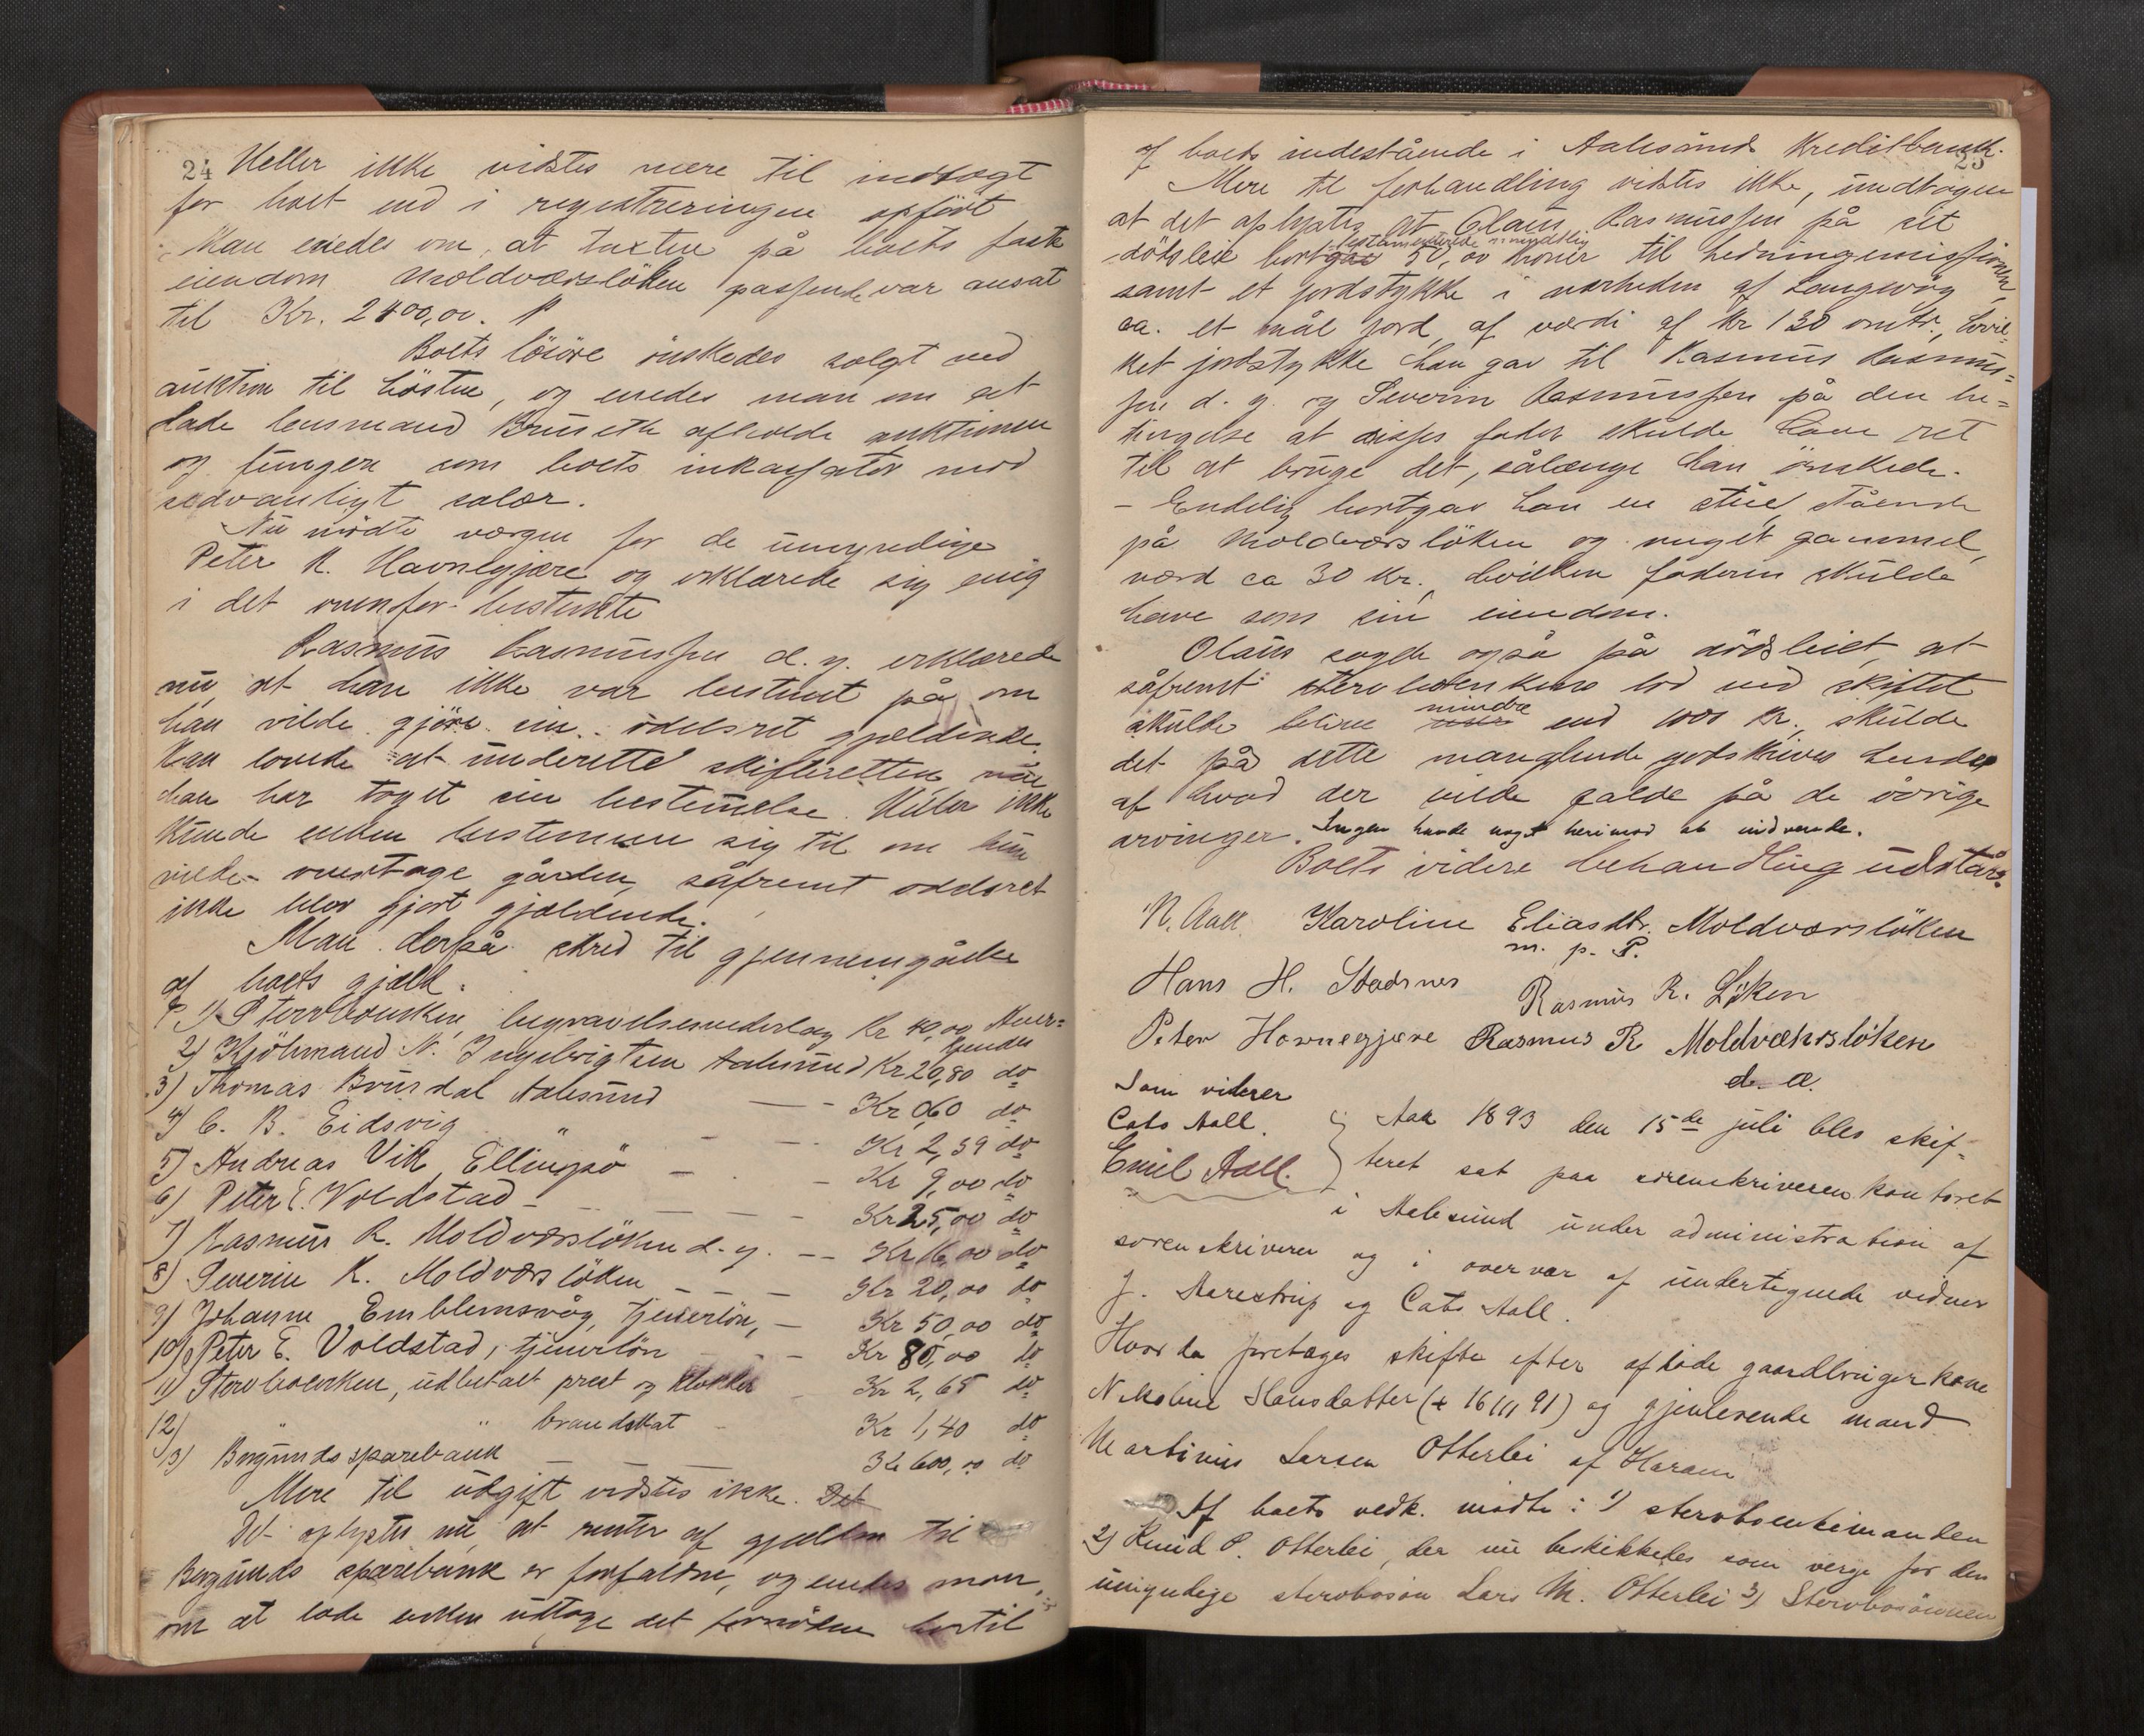 24 Heller ikke vidstes mere til indtægt
for boet end i registreringen opført
Man enedes om, at taxten på boets faste
eiendom Moldværsløken passende var ansat
til Kr. 2400,00.
Boets løsøre ønskedes solgt ved
auktion til høsten, og enedes man om at
lade lensmand Brüseth afholde auktionen
og fungere som boets inkassator mod
sedvanligt salær.
Nu mødte værgen for de umyndige
Peter K. Havnegjære og erklærede sig enig
i det ovenfor bestemte
Rasmus Rasmussen d. y. erklærede
nu at han ikke var bestemt på, om
han vilde gjøre sin odelsret gjældende.
Han lovede at underette skifteretten når
han har taget sin bestemelse. Heller ikke
kunde enken bestemme sig til om hun
vilde overtage gården, såfremt oddsret
ikke blev gjort gjældende.
Man derpå skred til gjennemgåelse
af boets gjæld.
1) Stervboenken, begravelsesvederlag Kr 40,00 Aner-
kjendes
2) Kjøbmand N. Ingebrigtsen Aalesund Kr 20,80 do
3) Thomas Brusdal Aalesund — - Kr 0,60 do
4) C. B. Eidsvig " - — Kr 2,39 do
5) Andreas Vik, Ellingsø - - Kr 9,00 do
6) Peter E. Voldstad - - — — — Kr 25,00 do
7) Rasmus R. Moldværsløken d. y. -- Kr 16,00 do
8) Severin R. Moldværsløken - - — Kr 20,00 do
9) Johanne Emblemsvåg, tjenerløn, — Kr 50,00 do
10) Peter E. Voldstad, tjenerløn - - - Kr 80,00 do
11) Stervboenken, udbetalt prest og klokker - Kr 2,65 do
12) " " brandskat - Kr 1,40 do
13) Borgunds sparebank — — Kr 600,00 do
Mere til udgift vidstes ikke. Det
Det oplystes nu at renter af gjælden til
Borgunds sparebank er forfaldne, og enedes man
om at lade enken udtage det fornødne hertil
25
af boets indestående i Aalesunds Kreditbank.
Mere til forhandling vidstes ikke, undtagen
at det oplystes at Olaus Rasmussen på sit
testamenterede mundtlig
dødsleie bortgav 50,00 kroner til hedningemissionen,
samt et jordstykke i nærheden af Langevåg
ca. et mål jord, af værdi af Kr 130 omtr., hvil-
ket jordstykke han gav til Rasmus Rasmus-
sen d. y. og Severin Rasmussen på den be-
tingelse at disses fader skulde have ret
til at bruge det, sålænge han ønskede.
- Endelig bortgav han en stue, stående
på Moldværsløken og meget gammel,
værd ca 30 Kr., hvilken faderen skulde
have som sin eiendom.
Olaus sagde også på dødsleiet, at
såfremt stervboenkens lod ved skiftet
mindre
skulde blive end 1000 Kr., skulde
det på dette manglende godskrives hende
af hvad der vilde falde på de øvrige
arvinger. Ingen havde noget herimod at indvende.
Boets videre behandling udstår.
N. Aall Karoline Eliasdtr. Moldværsløken
m. p. P.
Hans H. Stadsnes Rasmus R. Løken
Peter Havnegjære Rasmus R Moldværsløken
d. æ.
Som vidner
Cato Aall.
Emil Aall.
Aar 1893 den 15de juli blev skif-
teret sat paa sorenskriverens kontoret
i Aalesund under administration af
sorenskriveren og i overvær af undertegnede vidner
J. Marestrup og Cato Aall.
Hvorda foretoges skifte efter afdøde gaardbrugerkone
Nikoline Hansdatter († 16/11 91) og gjenlevende mand
Martinus Larsen Otterlei af Haram
Af boets vedk. mødte: 1) stervboenkemanden
2) Knud P. Otterlei, der nu beskikkedes som verge for den
umyndige stervbosøn Lars M. Otterlei 3) Stervbosønnen